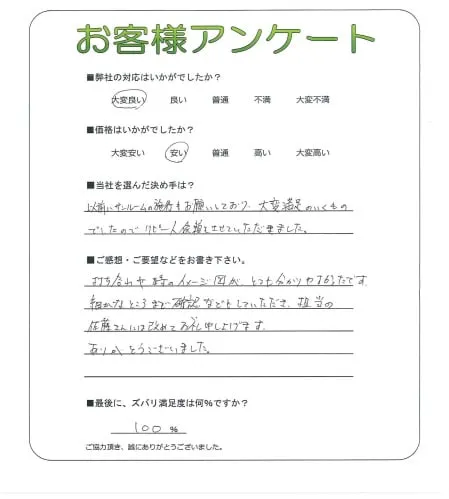 お客様アンケート
■弊社の対応はいかがでしたか？
大変良い 良い 普通 不満 大変不満
■価格はいかがでしたか？
大変安い 安い 普通 高い 大変高い
■当社を選んだ決め手は？
以前にサンルームの施行もお願いしており、大変満足のいくもの
でしたので リピート依頼させていただきました。
■ご感想・ご要望などをお書き下さい。
打ち合わせ時のイメージ図が、とても分かりやすかったです
細かなところまで確認などもしていただき、担当の
佐藤さんには改めてお礼申し上げます。
ありがとうございました。
■最後に、ズバリ満足度は何％ですか？
100 %
ご協力頂き、誠にありがとうございました。